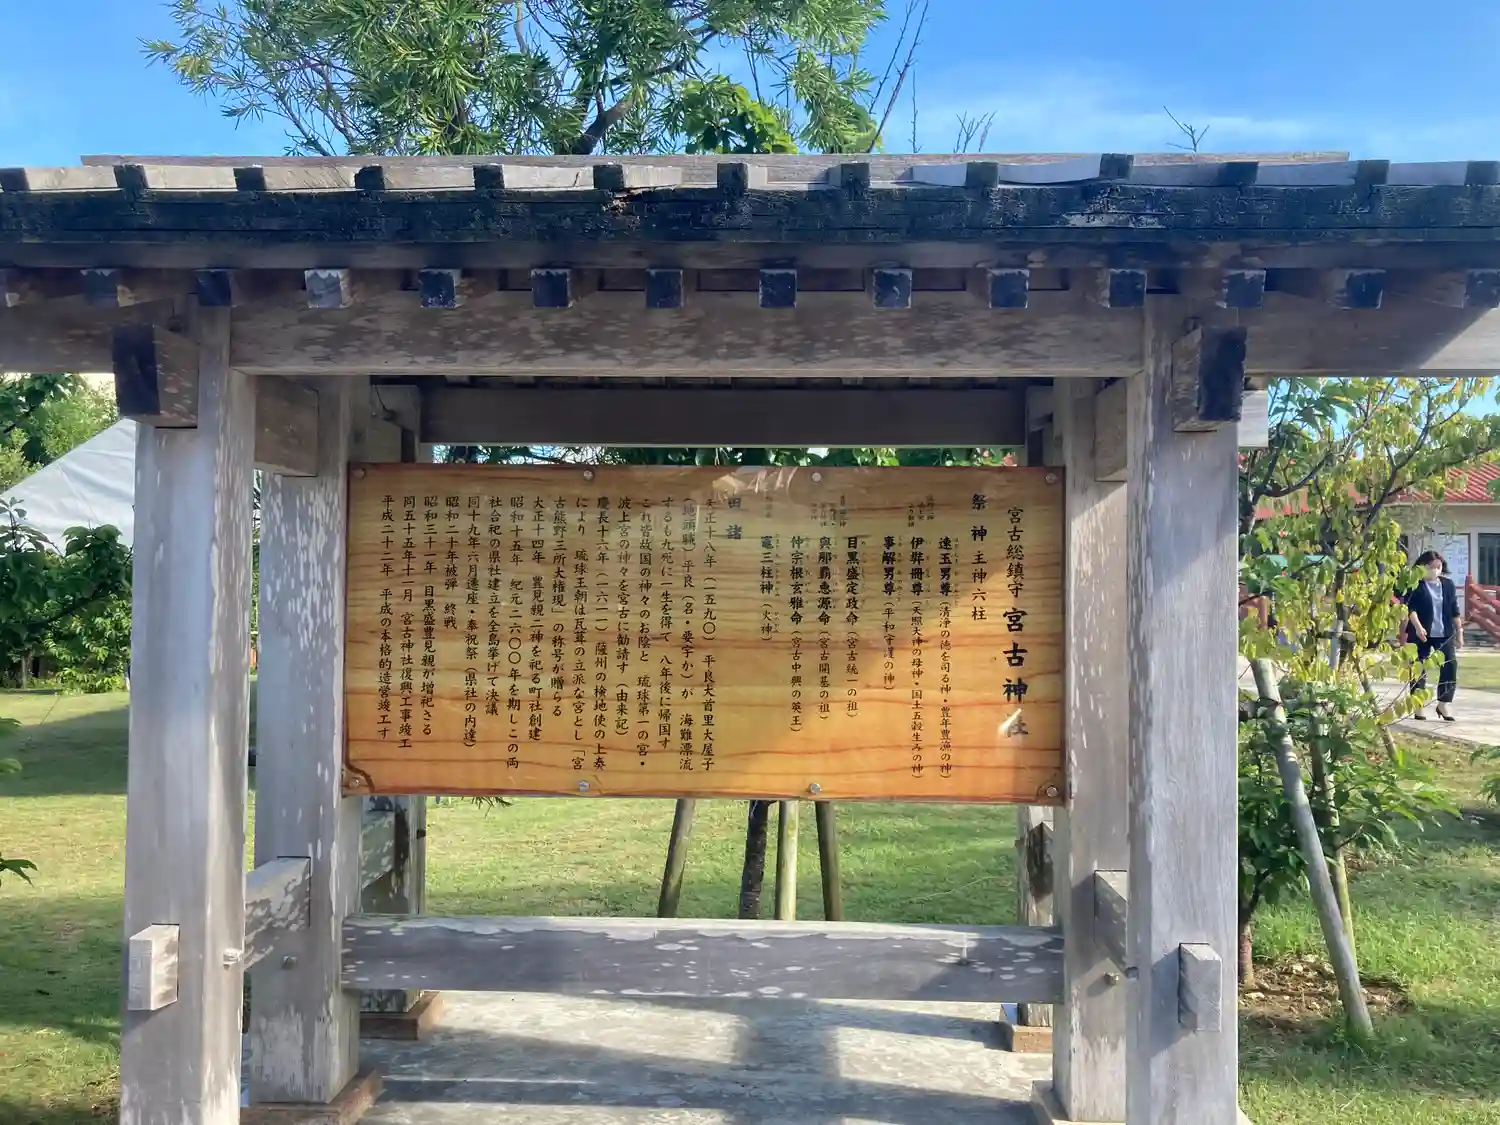 宮古総鎮守 宮古神社
祭神 主神六柱
速玉男尊(清浄の徳を司る神・豊年豊漁の神)
伊弉冊尊(天照大神の母神・国土五穀生みの神)
事解男尊(平和守護の神)
目黒盛定政命(宮古統一の祖)
與那覇恵源命(宮古開基の祖)
仲宗根玄雅命(宮古中興の英王)
竈二柱神(火神)
由諸
天正十八年(一五九〇) 平良大首里大屋子
(地頭職)平良(名・要字か)が 海難漂流
するも九死に一生を得て 八年後に帰国す
これ皆故国の神々のお陰と 琉球第一の宮・
波上宮の神々を宮古に勧請す(由来記)
慶長十六年(一六一一)薩州の検地使の上奏
により 琉球王朝は瓦葺の立派な宮とし「宮
古熊野三所大権現」の称号が贈らる
大正十四年 豊見親二神を祀る町社創建
昭和十五年 紀元二六〇〇年を期しこの両
社合祀の県社建立を全島挙げて決議
同十九年六月遷座・奉祝祭(県社の内達)
昭和二十年被弾 終戦
昭和三十一年 目黒盛豊見親が増祀さる
同五十五年十一月 宮古神社復興工事竣工
平成二十二年 平成の本格的造営竣工す